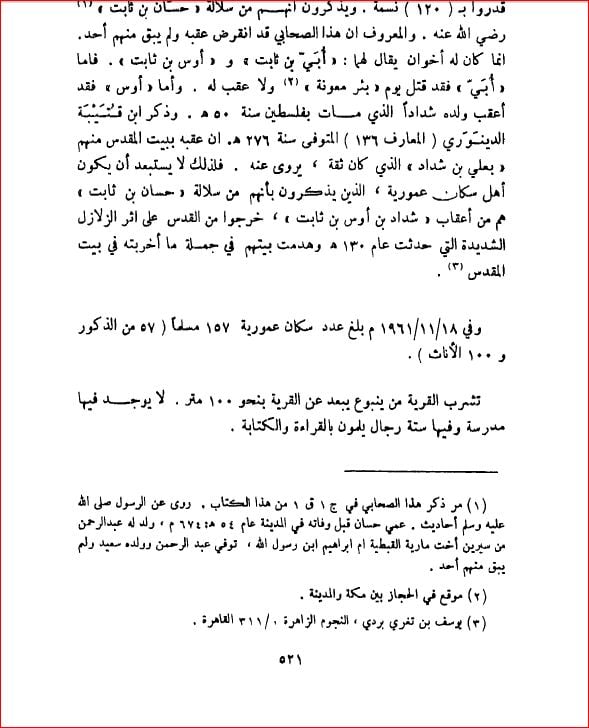 قدروا بـ ( ١٢٠ ) نسمة . ويذكرون انهـم من سلالة « حسّان بن ثابت » (١)
رضي الله عنه . والمعروف ان هذا الصحابي قد انقرض عقبه ولم يبق منهم أحد.
انما كان له أخوان يقال لهما : « أُبَيّ بن ثابت » و « أوس بن ثابت » . فاما
« أُبَيّ » فقد قتل يوم « بئر معونة » (٢) ولا عقب له . وأما « أوس » فقد
أعقب ولده شداداً الذي مـات بفلسطين سنة ٥٠ هـ . وذكر ابن قـُتـَيـْبـَة
الدينـَوَري ( المعارف ١٣٦ ) المتوفى سنة ٢٧٦ هـ. ان عقبه ببيت المقدس منهم
« يعلي بن شداد » الذي كان ثقة ، يروى عنه . فلذلك لا يستبعد أن يكون
أهل سكان عمورية ، الذين يذكرون بأنهم من سلالة « حسان بن ثابت »
هم من أعقاب « شداد بن أوس بن ثابت » ، خرجوا من القدس على اثر الزلازل
الشديدة التي حدثت عام ١٣٠ هـ وهدمت بيتهم في جملة ما أخربته في بيت
المقدس (٣) .
وفي ١٩٦١/١١/١٨ م بلغ عدد سكان عمورية ١٥٧ مسلماً ( ٥٧ من الذكور
و ١٠٠ الأناث ) .
تشرب القرية من ينبوع يبعد عن القرية بنحو ١٠٠ متر . لا يوجـد فيها
مدرسة وفيها ستة رجال يلمون بالقراءة والكتابة .
(١) مر ذكر هذا الصحابي في ج ١ ق ١ من هذا الكتاب . روى عن الرسول صلى الله
عليه وسلم أحاديث . عمي حسان قبل وفاته في المدينة عام ٥٤ هـ: ٦٧٤ م ، ولد له عبدالرحمن
من سيرين أخت مارية القبطية ام ابراهيم ابن رسول الله ، توفي عبد الرحمن وولده سعيد ولم
يبق منهم أحد .
(٢) موقع في الحجاز بين مكة والمدينة .
(٣) يوسف بن تغري بردي ، النجوم الزاهرة ٣١١/٠ القاهرة .
٥٢١